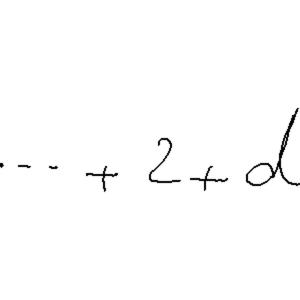 ... + 2 + d